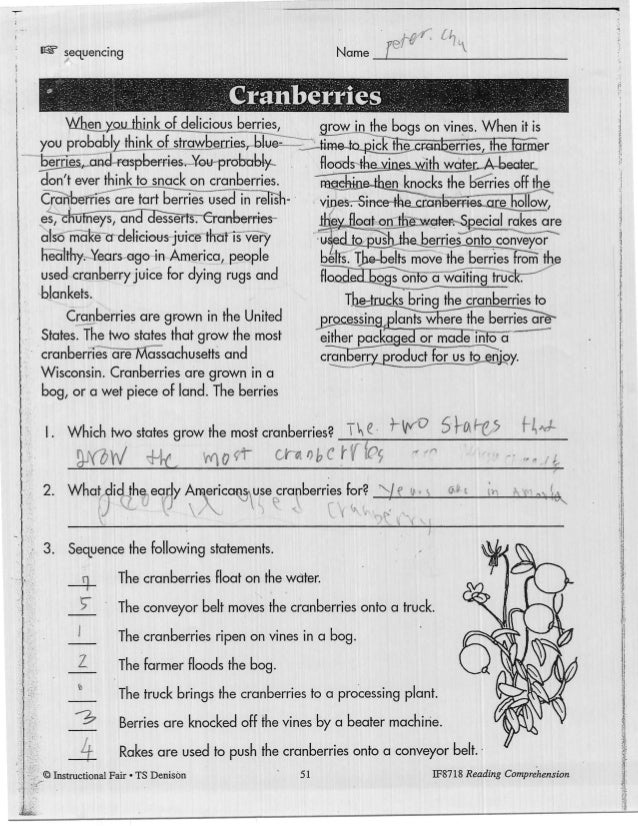 ☞ sequencing Name peter. Chu
Cranberries
When you think of delicious berries,
you probably think of strawberries, blue-
berries, and raspberries. You probably
don't ever think to snack on cranberries.
Cranberries are tart berries used in relish-
es, chutneys, and desserts. Cranberries
also make a delicious juice that is very
healthy. Years ago in America, people
used cranberry juice for dying rugs and
blankets.
Cranberries are grown in the United
States. The two states that grow the most
cranberries are Massachusetts and
Wisconsin. Cranberries are grown in a
bog, or a wet piece of land. The berries
grow in the bogs on vines. When it is
time to pick the cranberries, the farmer
floods the vines with water. A beater
machine then knocks the berries off the
vines. Since the cranberries are hollow,
they float on the water. Special rakes are
used to push the berries onto conveyor
belts. The belts move the berries from the
flooded bogs onto a waiting truck.
The trucks bring the cranberries to
processing plants where the berries are
either packaged or made into a
cranberry product for us to enjoy.
1. Which two states grow the most cranberries? The two States that
grow the most cranberries are
2. What did the early Americans use cranberries for? Years in
people used cranberry
3. Sequence the following statements.
The cranberries float on the water.
5 The conveyor belt moves the cranberries onto a truck.
1 The cranberries ripen on vines in a bog.
2 The farmer floods the bog.
The truck brings the cranberries to a processing plant.
3 Berries are knocked off the vines by a beater machine.
4 Rakes are used to push the cranberries onto a conveyor belt.
© Instructional Fair • TS Denison 51 IF8718 Reading Comprehension